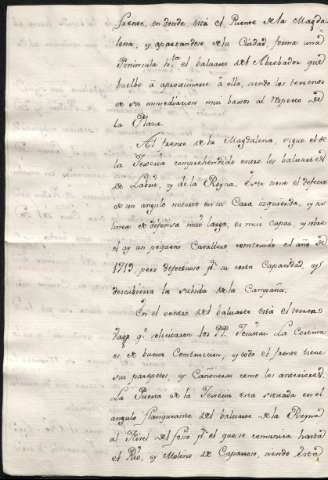 frente, en donde está el Puente de la Magda
lena, y apartandose de la Ciudad forma una
Peninsula hta. el baluarte del Arrebador que
buelbe á aproximarse á ella, siendo los terrenos
de su inmediacion mui baxos al respecto de
la Plaza.
Al frente de la Magdalena, sigue el de
la Texeria comprehendido entre los baluartes
de Labrit, y de la Reyna. Este tiene el defecto
de un angulo muerto en su Cara izquierda, y su
linea de defensa mui larga, es mui capaz, y sobre
el ay un pequeño Cavallero construido el año de
1719, pero defectuoso pr. su corta Capacidad, y
descubierta la subida de la Campaña.
En el centro del baluarte está el terreno
que solicitaron los PP. La Cortina
es de buena Construccion, y todo el frente tiene
sus parapetos, y Cañoneras como los anteriores.
La Puerta de la Texeria esta situada en el
angulo flanqueante del baluarte de la Reyna
al Nivel del foso pr. el que se comunica hasta
el Rio, y Molino de Caparroso, siendo esta